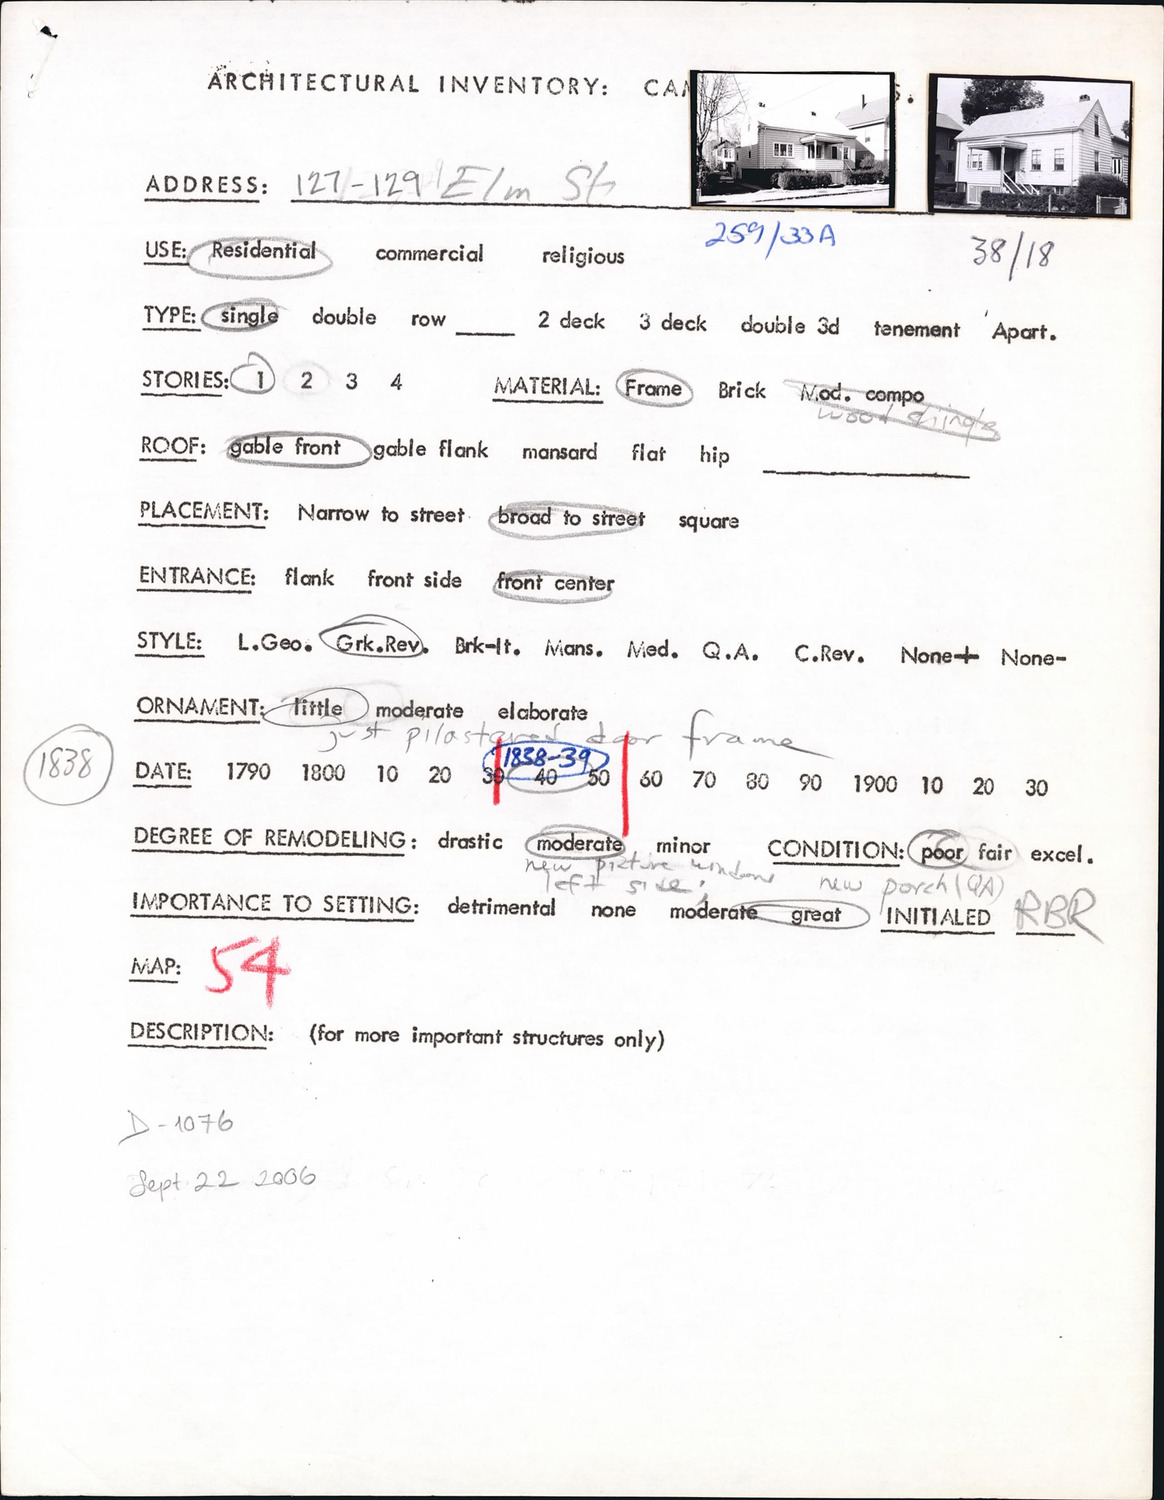 ARCHITECTURAL INVENTORY: CAM S.
ADDRESS: 127-129 Elm St
259/33A
38/18
USE: Residential commercial religious
TYPE: single double row ____ 2 deck 3 deck double 3d tenement Apart.
STORIES: 1 2 3 4 MATERIAL: Frame Brick Mod. compo
wood shingle
ROOF: gable front gable flank mansard flat hip
PLACEMENT: Narrow to street broad to street square
ENTRANCE: flank front side front center
STYLE: L.Geo. Grk.Rev. Brk-It. Mans. Med. Q.A. C.Rev. None+ None-
ORNAMENT: little moderate elaborate
just pilastered door frame
1838-39
1838
DATE: 1790 1800 10 20 30 40 50 60 70 80 90 1900 10 20 30
DEGREE OF REMODELING: drastic moderate minor CONDITION: poor fair excel.
new picture windows
left side; new porch (QA)
IMPORTANCE TO SETTING: detrimental none moderate great INITIALED RBR
MAP: 54
DESCRIPTION: (for more important structures only)
D-1076
Sept 22 2006